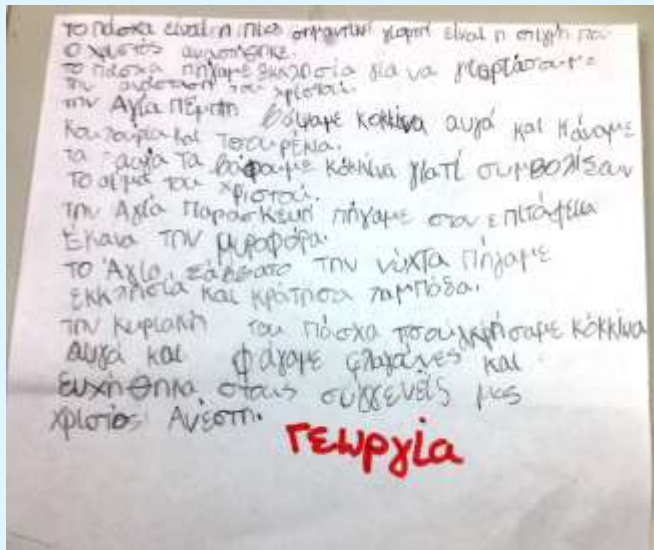 το πάσχα είναι η πιο σημαντική γιορτή είναι η στιγμή που
ο χριστός αναστήθηκε.
το πάσχα πήγαμε εκκλησία για να γιορτάσουμε
την ανάσταση του χριστού.
την Αγία πέμπτη βάψαμε κόκκινα αυγά και κάναμε
κουλούρια και τσουρέκια.
τα αυγά τα βάφουμε κόκκινα γιατί συμβολίζουν
το αίμα του χριστού.
την Αγία Παρασκευή πήγαμε στον επιτάφεια
έκανα την μυροφόρα.
το Άγιο σάββατο την νύχτα πήγαμε
εκκλησία και κράτησα λαμπάδα.
την κυριακή του πάσχα τσουγκρίσαμε κόκκινα
αυγά και φάγαμε φλαγούνες και
ευχήθηκα στους συγγενείς μας
χριστός Ανέστη.
Γεωργία